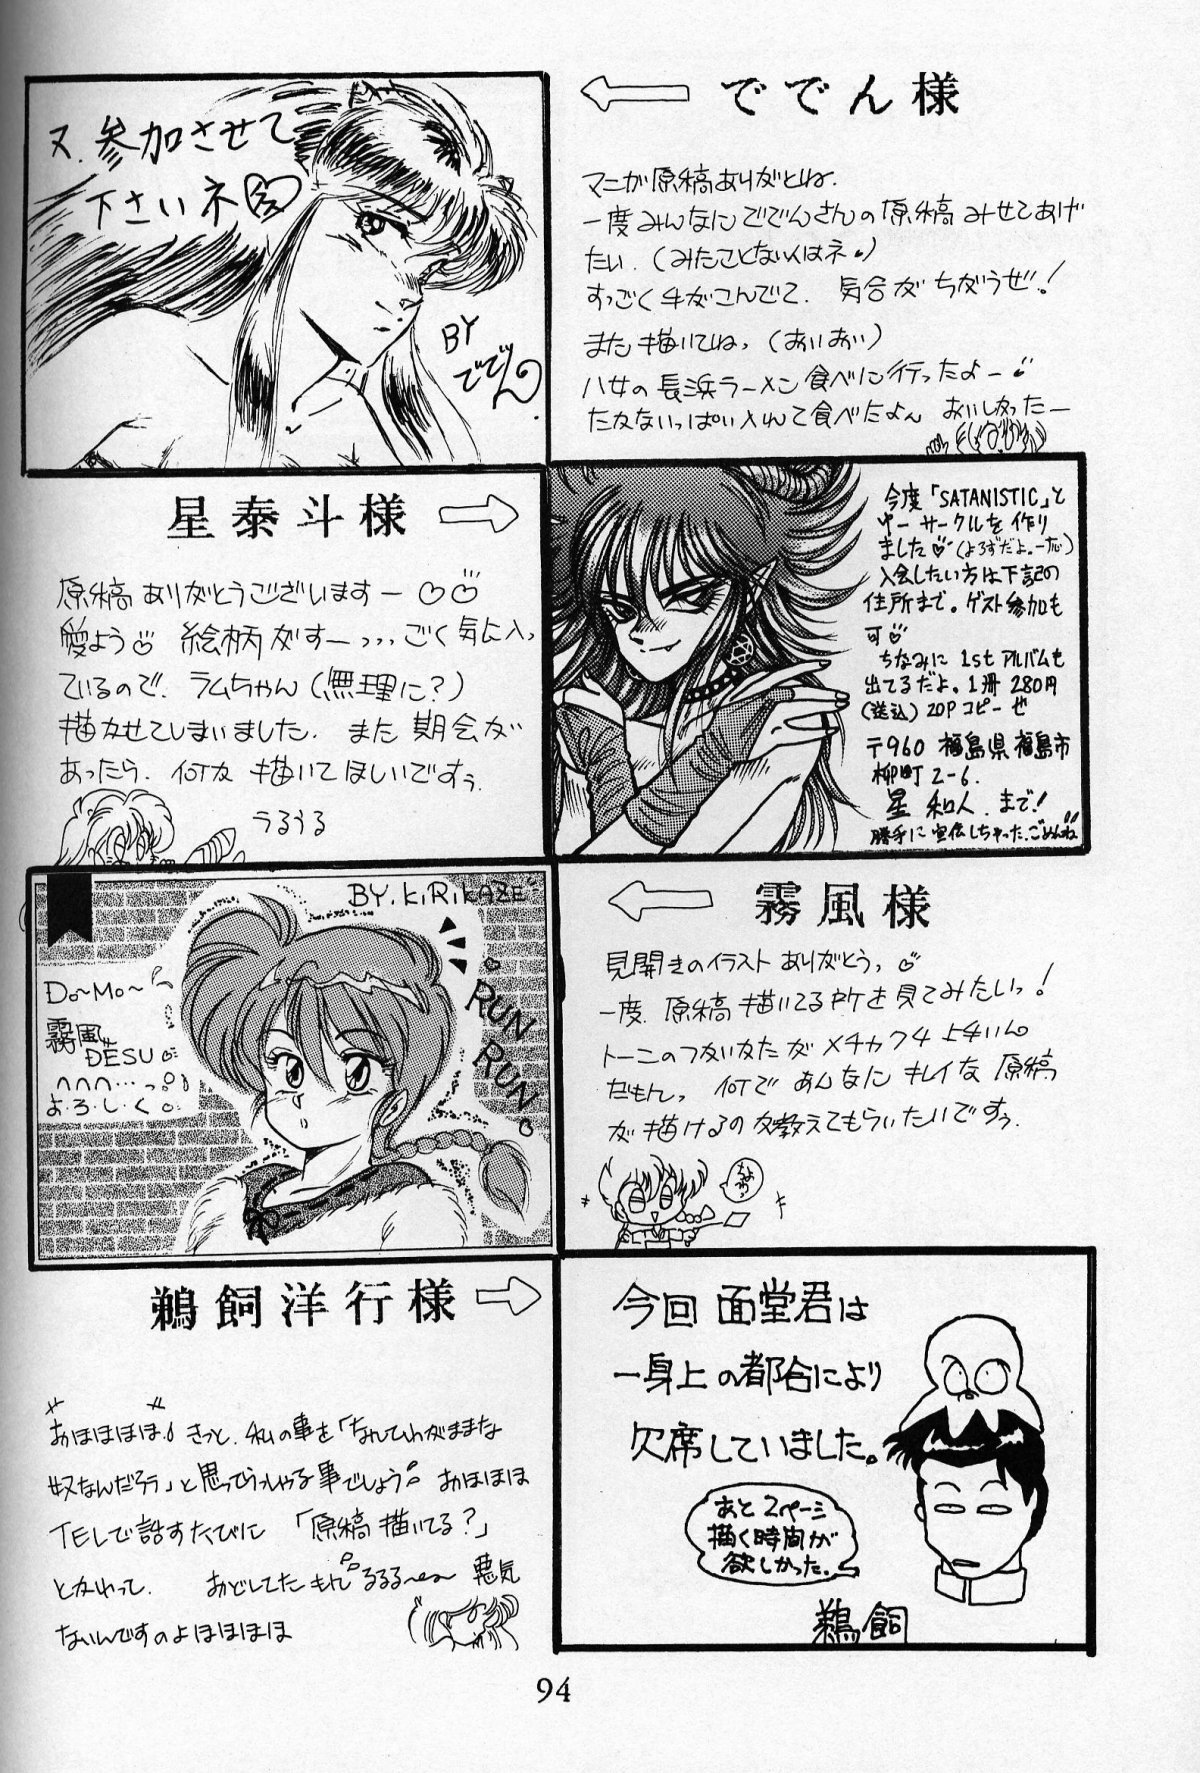 又、参加させて
下さいネ
BY
ででん
ででん様
マニガ原稿ありがとね.
一度みんなにででんさんの原稿みせてあげ
たい.(みたことない人はネ)
すっごく手がこんでて.気合がちがうぜ!
また描いてねっ(おいおい)
八女の長浜ラーメン食べに行ったよー
たかないっぱい入れて食べたよん おいしかったー
星泰斗様
原稿ありがとうございますー♡♡
愛よう♡ 絵柄がすーっっっごく気に入っ
ているので.ラムちゃん(無理に?)
描かせてしまいました. また期会が
あったら.何か描いてほしいですぅ
うるうる
今度「SATANISTIC」と
ゆーサークルを作り
ました♡(よろずだよ。一応)
入会したい方は下記の
住所まで。ゲスト参加も
可♡
ちなみに 1st アルバムも
出てるだよ。1冊 280円
(送込) 20P コピーぜ
〒960 福島県福島市
柳町 2-6.
星 和人.まで!
勝手に宣伝しちゃった.ごめんね
BY.KiRiKAZE
Do~Mo~
霧風
DESU
へへへ…っ
よ・ろ・し・く
RUN
RUN
霧風様
見開きのイラストありがとうっ♡
一度.原稿描いてる所を見てみたいっ!
トーンのつかいかたがメチャクチャ上手いん
だもんっ 何であんなにキレイな原稿
が描けるのか教えてもらいたいですぅ
鵜飼洋行様
おほほほほ! きっと.私の事を「なんてわがままな
奴なんだろう」と思ってらっしゃる事でしょう おほほほ
TELで話すたびに 「原稿描いてる?」
とかわって. おどしてたもん るるる~ 悪気
ないんですのよほほほほ
今回 面堂君は
一身上の都合により
欠席していました。
あと2ページ
描く時間が
欲しかった。
鵜飼
94